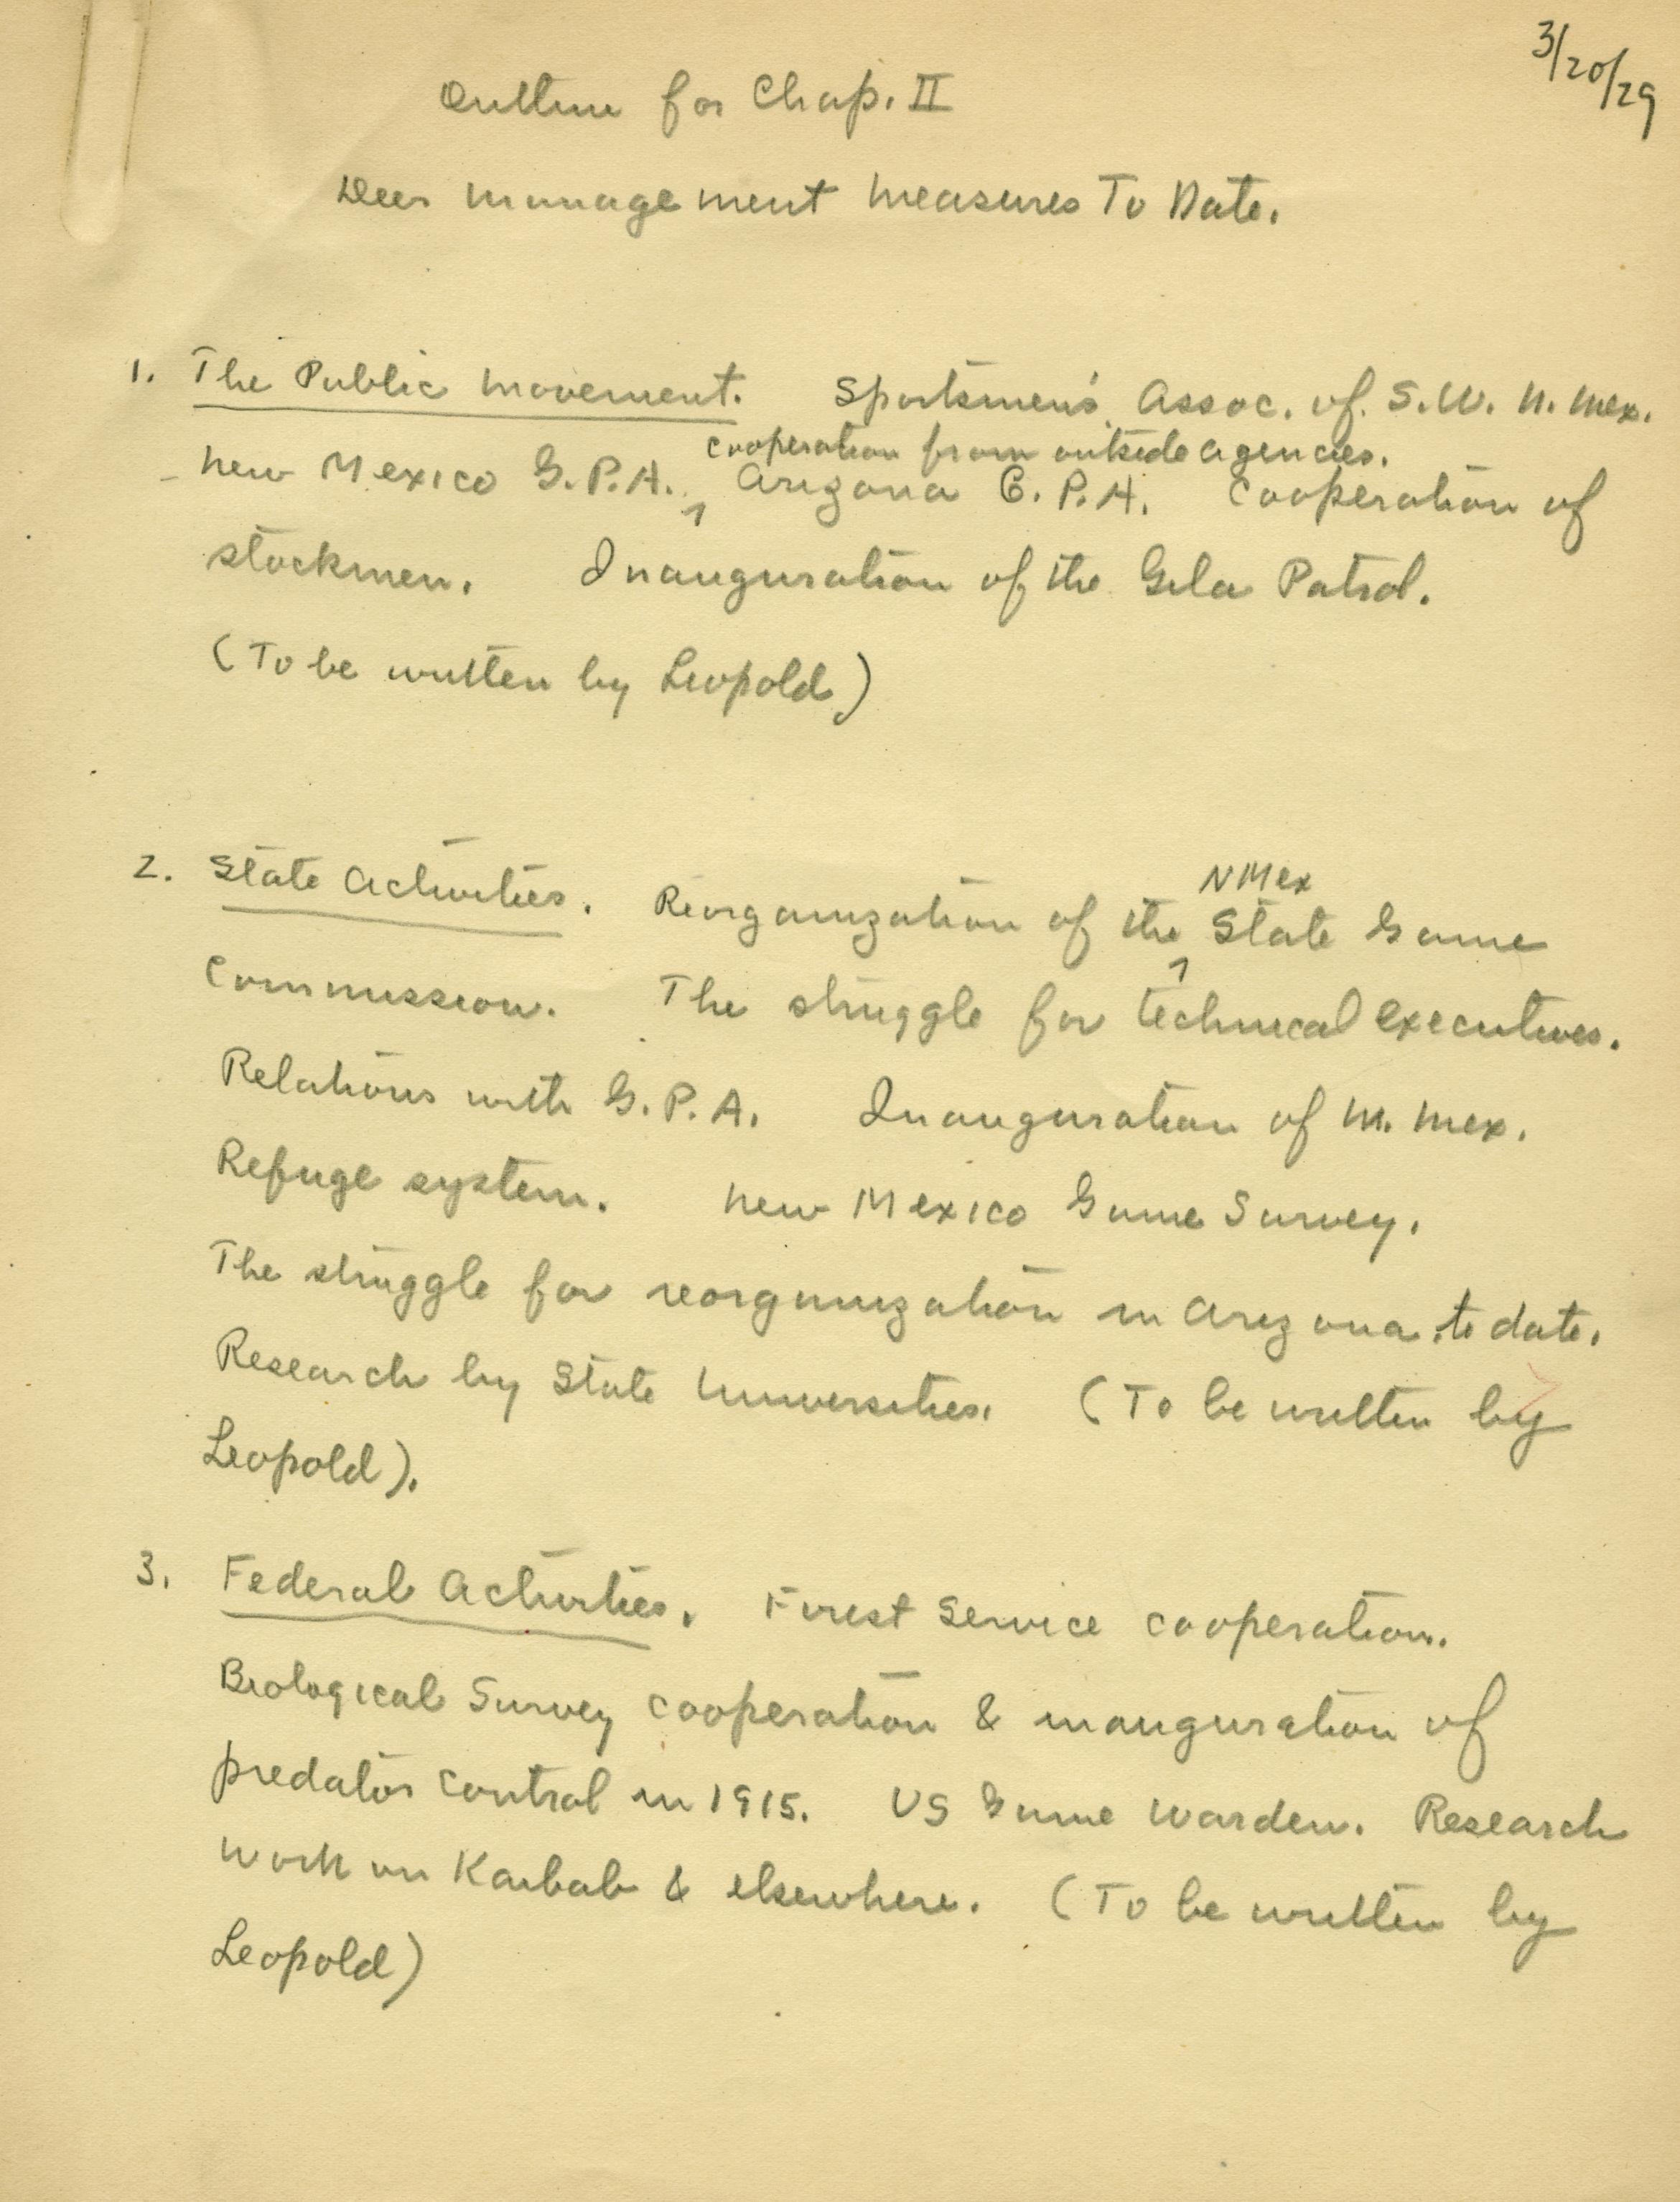 3/20/29
Outline for Chap. II
Deer Management Measures To Date.
1. The Public Movement. Sportsmen's Assoc. of S.W. N. Mex.
cooperation from outside agencies.
New Mexico G.P.A. ^ Arizona G.P.A. Cooperation of
stockmen. Inauguration of the Gila Patrol.
(To be written by Leopold)
NMex
2. State Activities. Reorganization of the ^ State Game
Commission. The struggle for technical executives.
Relations with G.P.A. Inauguration of N. Mex.
Refuge system. New Mexico Game Survey.
The struggle for reorganization in Arizona to date.
Research by State Universities. (To be written by
Leopold).
3. Federal Activities. Forest Service cooperation.
Biological Survey cooperation & inauguration of
predator control in 1915. US Game Warden. Research
work on Kaibab & elsewhere. (To be written by
Leopold)